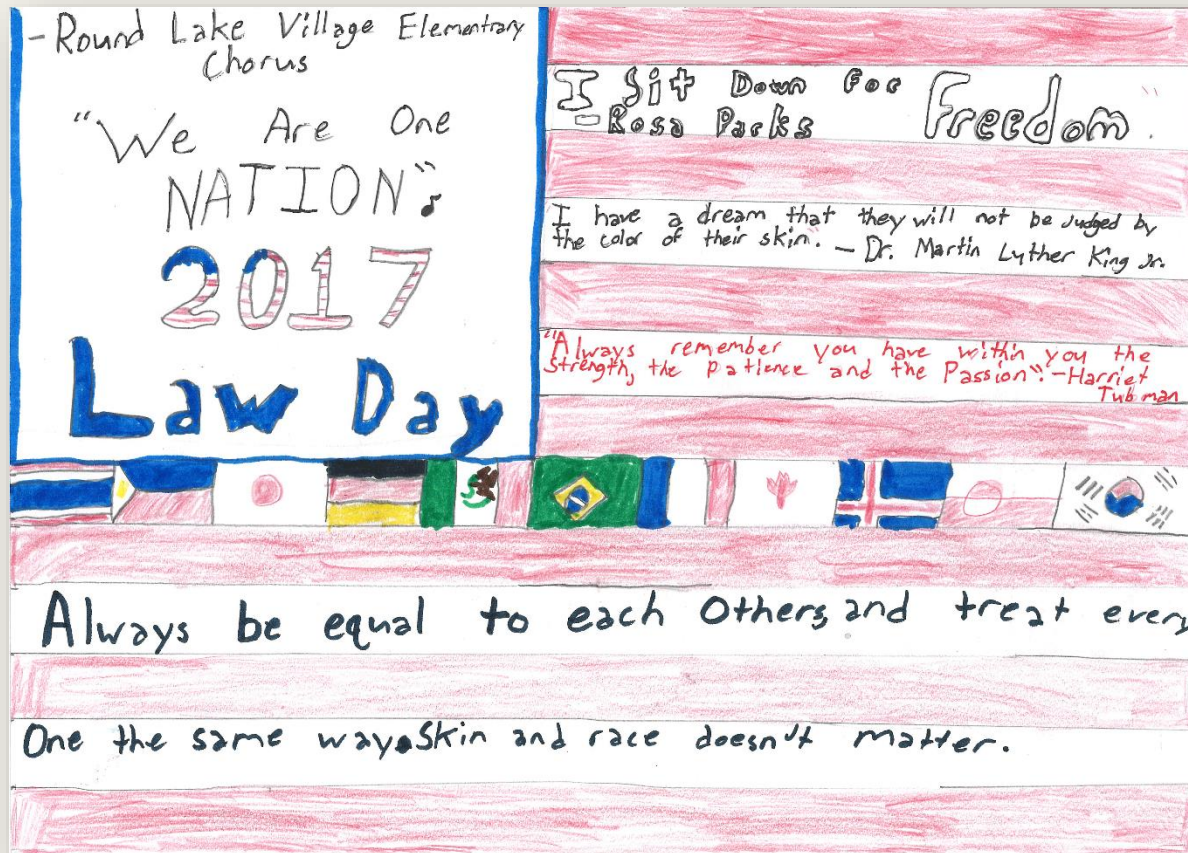 - Round Lake Village Elementrary
Chorus
"We Are One
NATION"
2017
Law Day
I Sit Down For Freedom."
- Rosa Parks
I have a dream that they will not be Judged by
the color of their skin." - Dr. Martin Luther King Jr.
"Always remember you have within you the
strength, the patience and the Passion". - Harriet
Tubman
Always be equal to each Others, and treat every
One the same way. Skin and race doesn't matter.